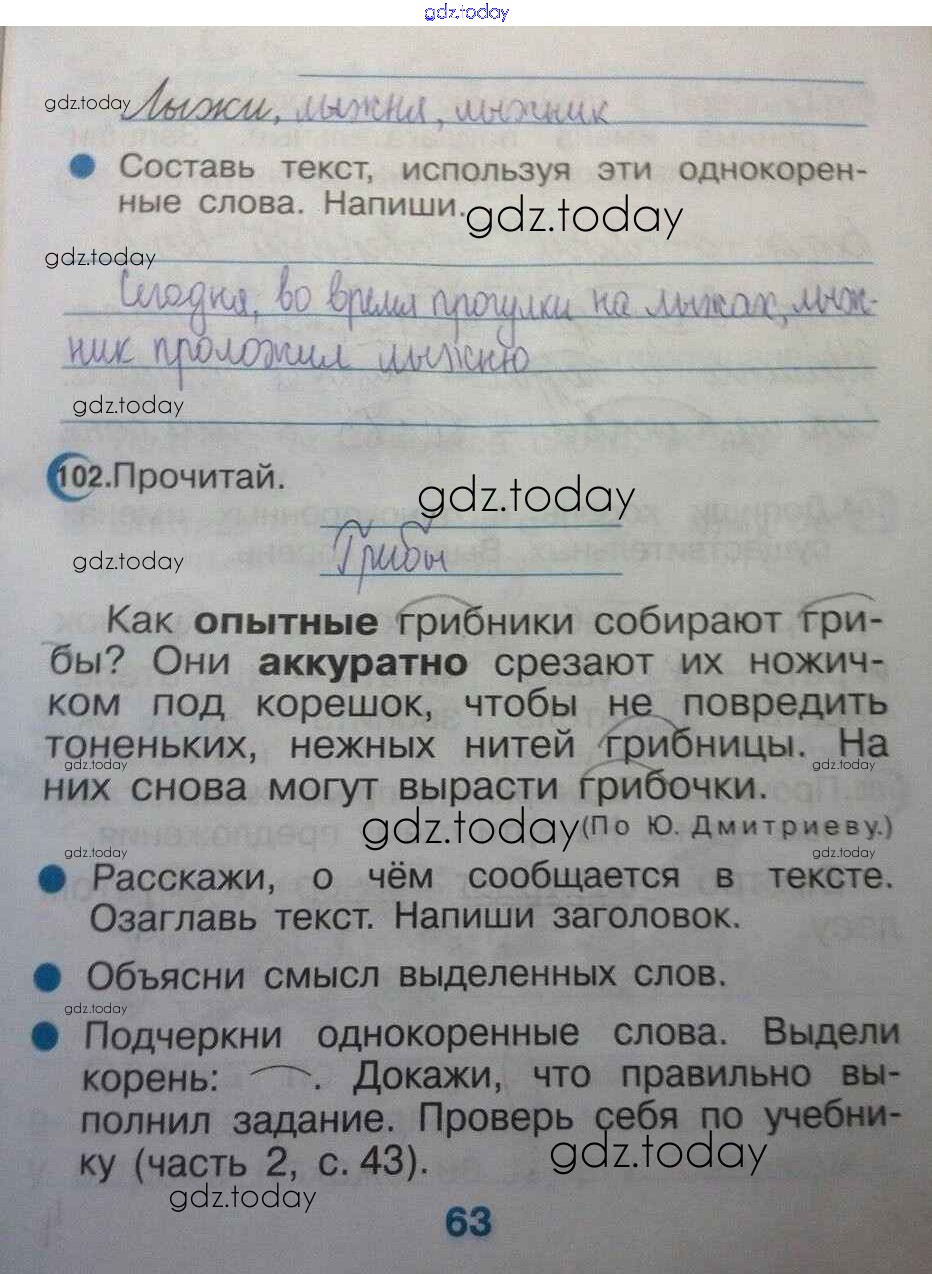 gdz.today
gdz.today Лыжи, лыжня, лыжник
Составь текст, используя эти однокорен-
ные слова. Напиши.
gdz.today
gdz.today
Сегодня, во время прогулки на лыжах, лыж-
ник проложил лыжню
gdz.today
102.Прочитай.
gdz.today
Грибы
gdz.today
Как опытные грибники собирают гри-
бы? Они аккуратно срезают их ножич-
ком под корешок, чтобы не повредить
тоненьких, нежных нитей грибницы. На
gdz.today gdz.today
них снова могут вырасти грибочки.
gdz.today (По Ю. Дмитриеву.)
gdz.today gdz.today
Расскажи, о чём сообщается в тексте.
Озаглавь текст. Напиши заголовок.
Объясни смысл выделенных слов.
gdz.today
Подчеркни однокоренные слова. Выдели
корень: . Докажи, что правильно вы-
полнил задание. Проверь себя по учебни-
ку (часть 2, с. 43). gdz.today
gdz.today
63